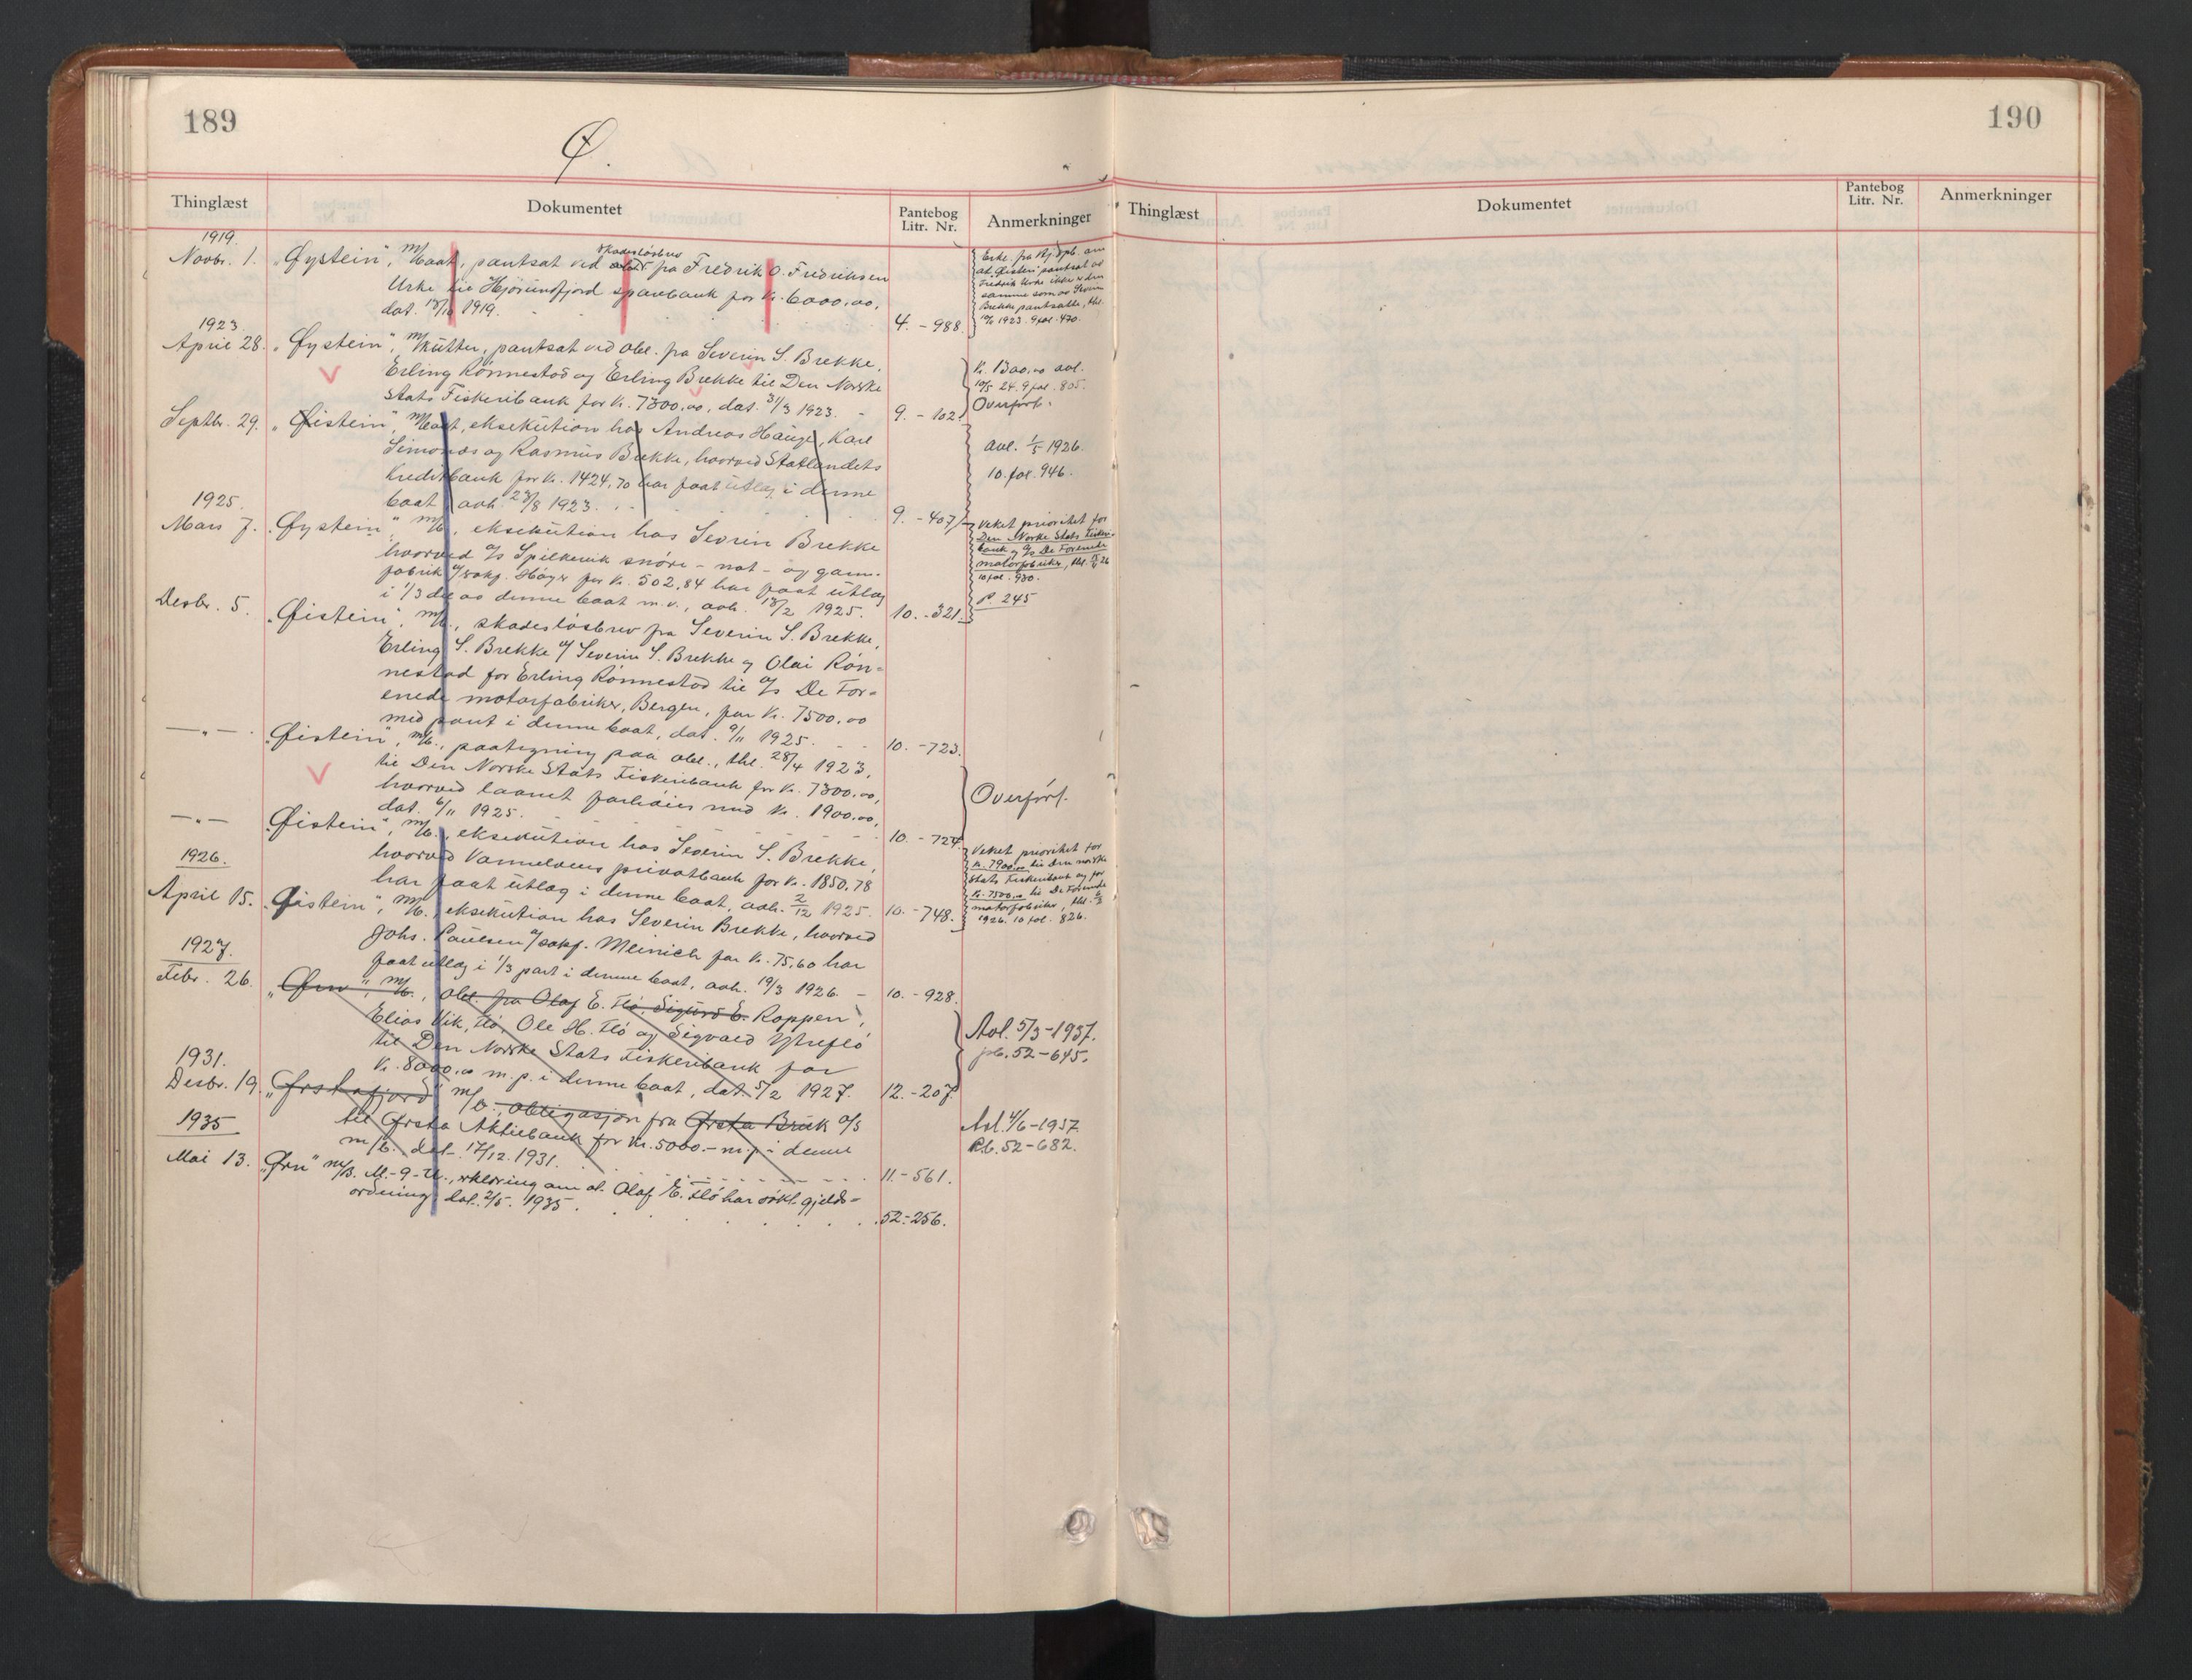 189
Ø.
Thinglæst
Dokumentet
Pantebog
Litr. Nr.
Anmerkninger
1919.
Novbr. 1. „Øystein", m/baat, pantsat ved skadesløsbrev fra Fredrik O. Fredriksen
Urke til Hjørundfjord sparebank for kr. 6000,00,
dat. 18/10 1919. 4. - 988.
Erkl. fra
at Øistein pantsat av
Fredrik Urke ikke er den
samme som av Severin
Brekke pantsatte, thl.
1923. 9 fol. 470.
1923.
April 28. „Øystein", m/kutter, pantsat ved obl. fra Severin S. Brekke,
Erling Rønnestad og Erling Brekke til Den Norske
Stats Fiskeribank for kr. 7300,00, dat. 31/3 1923. - 9. - 102.
Kr. 1300,00 avl.
10/5 24. 9 fol. 805.
Overført.
Septbr. 29. „Øistein", m/baat, eksekution hos Andreas Hauge, Karl
Simonæs og Rasmus Brekke, hvorved Statlandets
Kreditbank for kr. 1424,70 har faat utlæg i denne
baat, avh. 23/8 1923. 9. - 407.
Avl. 1/5 1926.
10. fol. 946.
1925.
Mars 7. „Øystein", m/b., eksekution hos Severin Brekke
hvorved a/s Spilkevik snøre- not- og garn-
fabrik v/sakf. Høyer for kr. 502,84 har faat utlæg
i 1/3 del av denne baat m.v., avh. 18/2 1925. 10. - 321.
Veket prioritet for
Den Norske Stats Fiskeri-
bank og a/s De Forenede
motorfabriker, thl. 26
10 fol. 930.
P. 245
Desbr. 5. „Øistein", m/b., skadesløsbrev fra Severin S. Brekke,
Erling S. Brekke v/ Severin S. Brekke og Olai Røn-
nestad for Erling Rønnestad til a/s De For-
enede motorfabriker, Bergen, for kr. 7500,00
med pant i denne baat, dat. 9/11 1925. - - 10. - 723.
— „ — „Øistein", m/b., paategning paa obl., thl. 28/4 1923,
til Den Norske Stats Fiskeribank for kr. 7300,00,
hvorved laanet forhøies med kr. 1900,00,
dat. 6/11 1925. 10. - 724.
Overført.
— „ — „Øistein", m/b., eksekution hos Severin S. Brekke,
hvorved Vannelvens privatbank for kr. 1850,78
har faat utlæg i denne baat, avh. 2/12 1925. 10. - 748.
Veket prioritet for
kr. 7900,00 til Den norske
Stats Fiskeribank og for
kr. 7500,00 til De Forenede
motorfabriker, thl.
1926. 10 fol. 826.
1926.
April 15. „Øistein", m/b., eksekution hos Severin Brekke, hvorved
Johs. Paulsen v/sakf. Meinich for kr. 75,60 har
faat utlæg i 1/3 part i denne baat, avh. 19/3 1926. - 10. - 928.
1927.
Febr. 26. „Ørn", m/b., obl. fra Olaf E. Flø, Sigurd E. Roppen,
Elias Vik, Flø, Ole H. Flø og Sigvald Ytreflø
til Den Norske Stats Fiskeribank for
kr. 8000,00 m. p. i denne baat, dat. 5/2 1927. 12. - 207.
Avl. 5/3-1937.
pb. 52-645.
1931.
Desbr. 19. „Ørstafjord" m/b., obligasjon fra Ørsta Bruk a/s
til Ørsta Aktiebank for kr. 5000.- m. p. i denne
m/b. dat. 17/12. 1931. 11. - 561.
Avl. 4/6-1937.
P.b. 52-682.
1935
Mai 13. „Ørn" m/b. M.-9-U., erklæring om at Olaf E. Flø har søkt gjelds-
ordning, dat. 2/5. 1935. 52 - 256.
190
Thinglæst
Dokumentet
Pantebog
Litr. Nr.
Anmerkninger